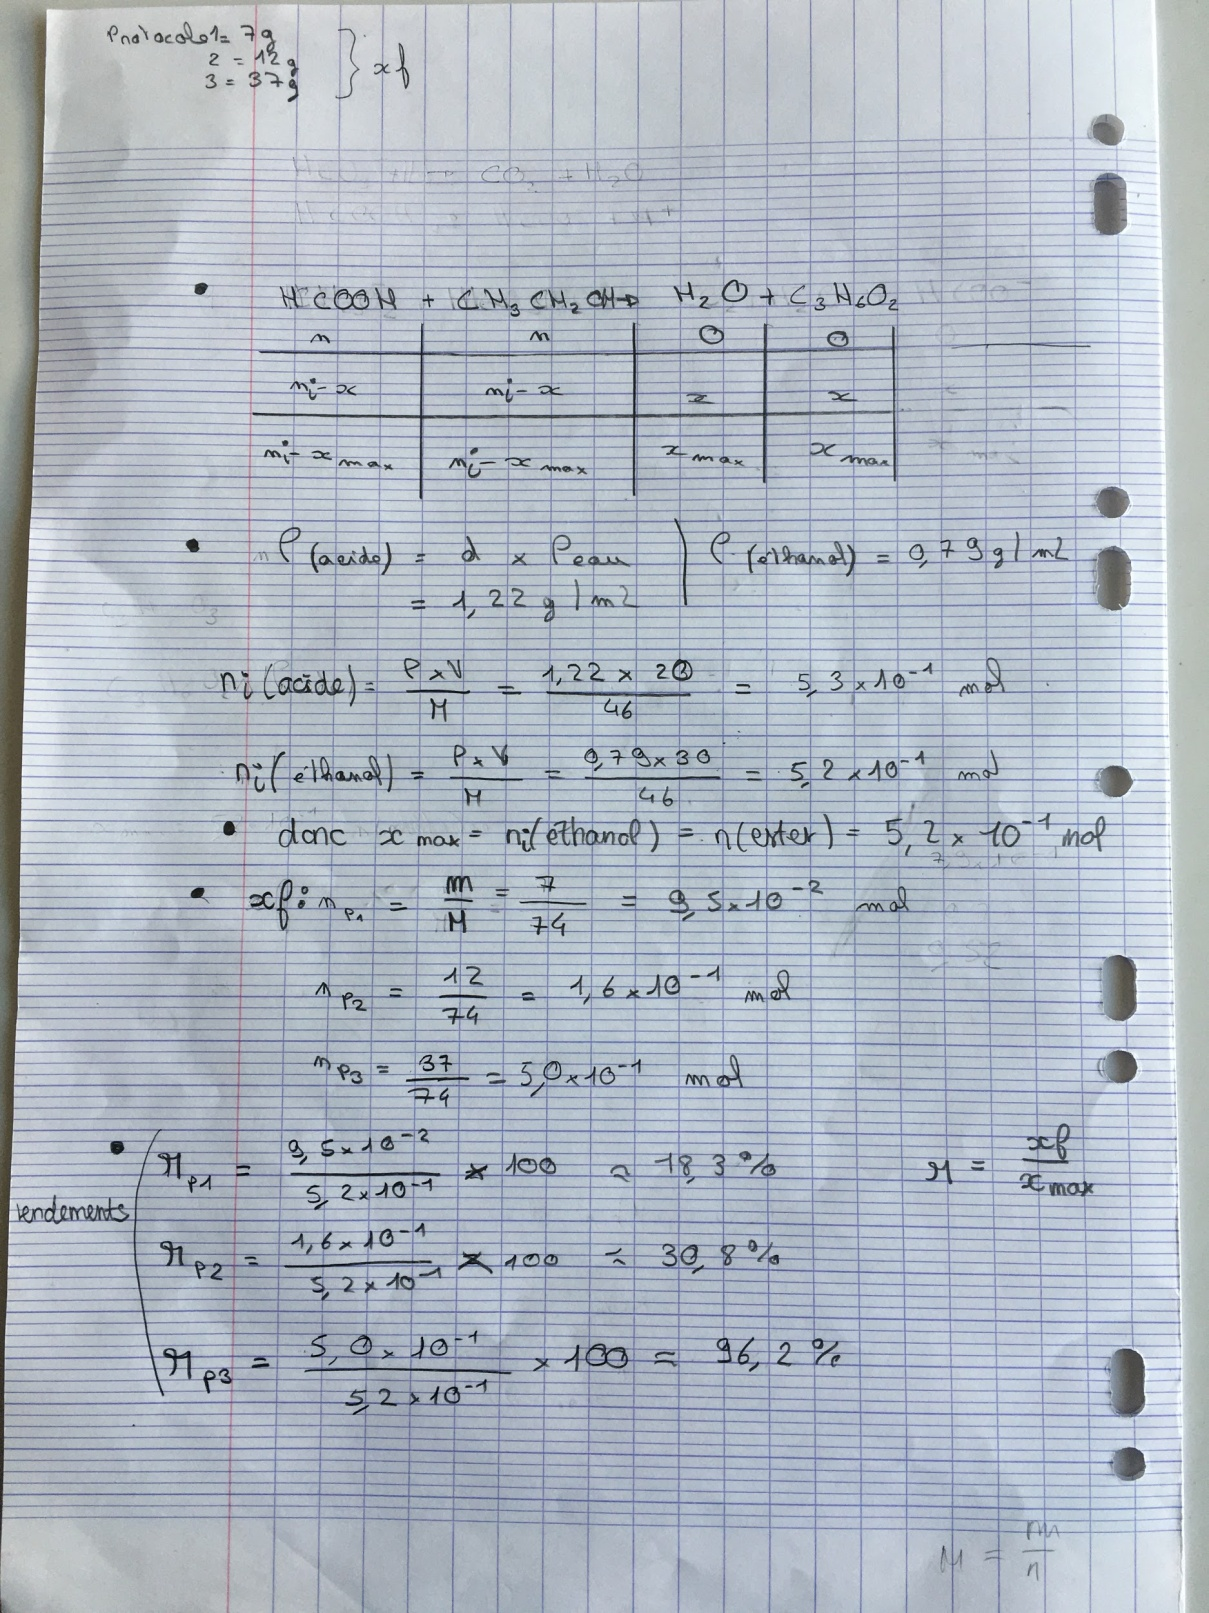 Protocole 1 = 7g
2 = 12g
3 = 37g
} xf
• HCOOH + CH₃CH₂OH → H₂O + C₃H₆O₂
n | n | 0 | 0
ni - x | ni - x | x | x
ni - x max | ni - x max | x max | x max
• ρ(acide) = d × ρeau | ρ(éthanol) = 0,79 g/mL
= 1,22 g/mL
ni(acide) = ρ×V / M = 1,22 × 20 / 46 = 5,3×10⁻¹ mol
ni(éthanol) = ρ×V / M = 0,79×30 / 46 = 5,2×10⁻¹ mol
• donc x max = ni(éthanol) = n(ester) = 5,2×10⁻¹ mol
• xf : n P1 = m / M = 7 / 74 = 9,5×10⁻² mol
n P2 = 12 / 74 = 1,6×10⁻¹ mol
n P3 = 37 / 74 = 5,0×10⁻¹ mol
• rendements
r P1 = 9,5×10⁻² / 5,2×10⁻¹ × 100 ≈ 18,3%
r = xf / x max
r P2 = 1,6×10⁻¹ / 5,2×10⁻¹ × 100 ≈ 30,8%
r P3 = 5,0×10⁻¹ / 5,2×10⁻¹ × 100 = 96,2%
M = m / n